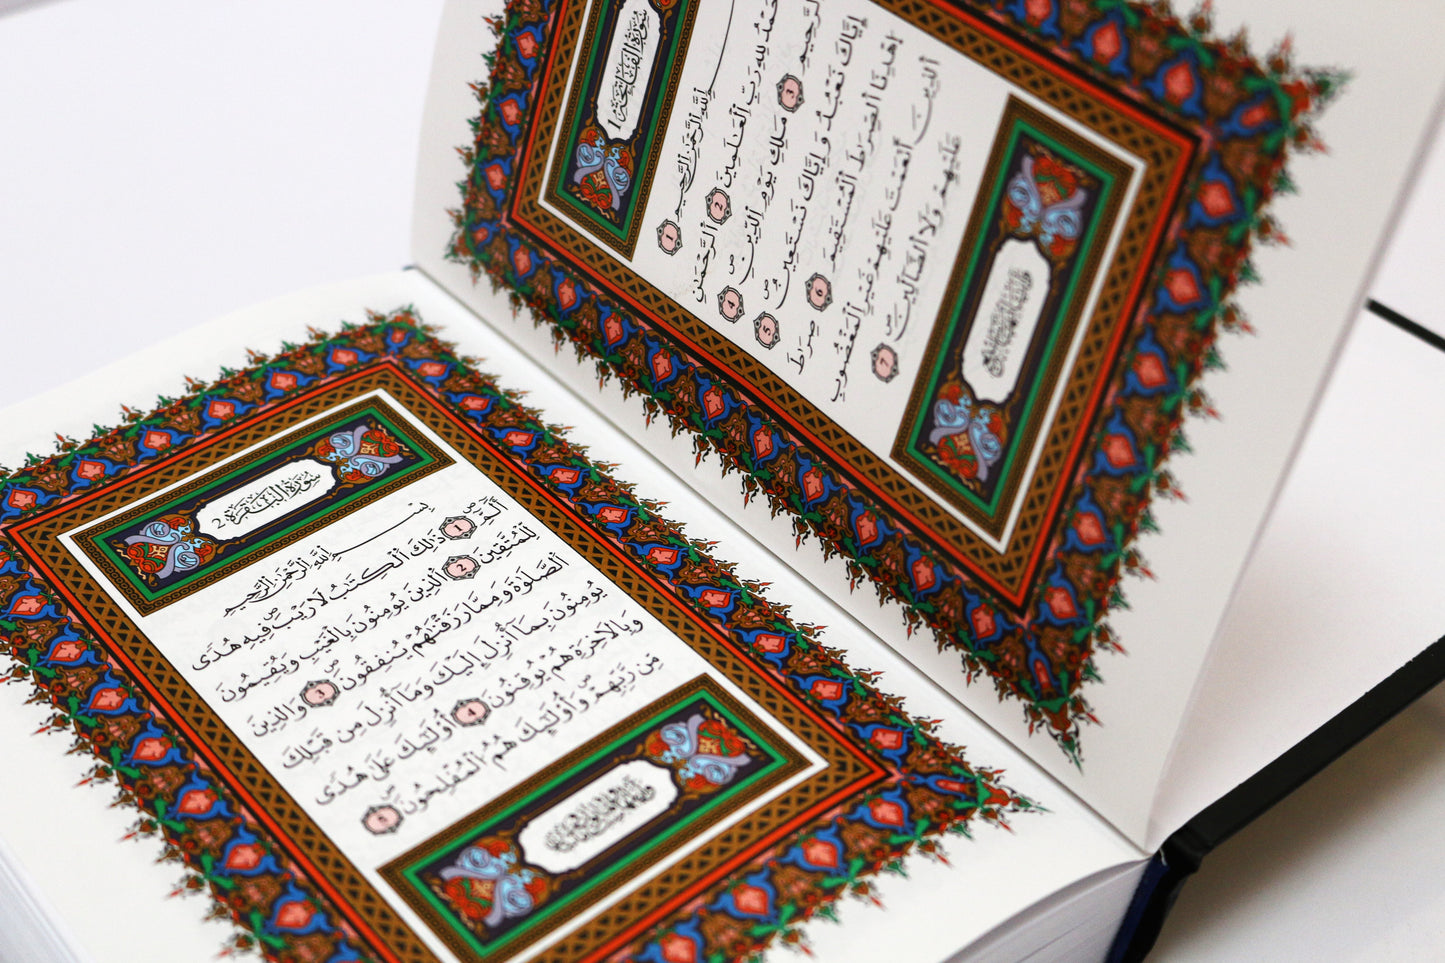 سُورَةُ الْفَاتِحَةِ 1
اِللَّهِ الرَّحْمَٰنِ الرَّحِيمِ 1
حَمْدُ لِلهِ رَبِّ الْعَٰلَمِينَ 2 الرَّحْمَٰنِ
الرَّحِيمِ 3 مَلِكِ يَوْمِ الدِّينِ 4
إِيَّاكَ نَعْبُدُ وَإِيَّاكَ نَسْتَعِينُ 5
اهْدِنَا الصِّرَٰطَ الْمُسْتَقِيمَ 6 صِرَٰطَ
الَّذِينَ أَنْعَمْتَ عَلَيْهِمْ غَيْرِ الْمَغْضُوبِ
عَلَيْهِمْ وَلَا الضَّآلِّينَ 7
سُورَةُ الْبَقَرَةِ 2
بِسْمِ اِللَّهِ الرَّحْمَٰنِ الرَّحِيمِ
أَلَٓمِّٓ 1 ذَٰلِكَ الْكِتَٰبُ لَا رَيْبَ فِيهِ هُدًى
لِّلْمُتَّقِينَ 2 الَّذِينَ يُومِنُونَ بِالْغَيْبِ وَيُقِيمُونَ
الصَّلَوٰةَ وَمِمَّا رَزَقْنَٰهُمْ يُنفِقُونَ 3 وَالَّذِينَ
يُومِنُونَ بِمَآ أُنزِلَ إِلَيْكَ وَمَآ أُنزِلَ مِن قَبْلِكَ
وَبِالَاخِرَةِ هُمْ يُوقِنُونَ 4 أُوْلَٰٓئِكَ عَلَىٰ هُدًى
مِّن رَّبِّهِمْ وَأُوْلَٰٓئِكَ هُمُ الْمُفْلِحُونَ 5